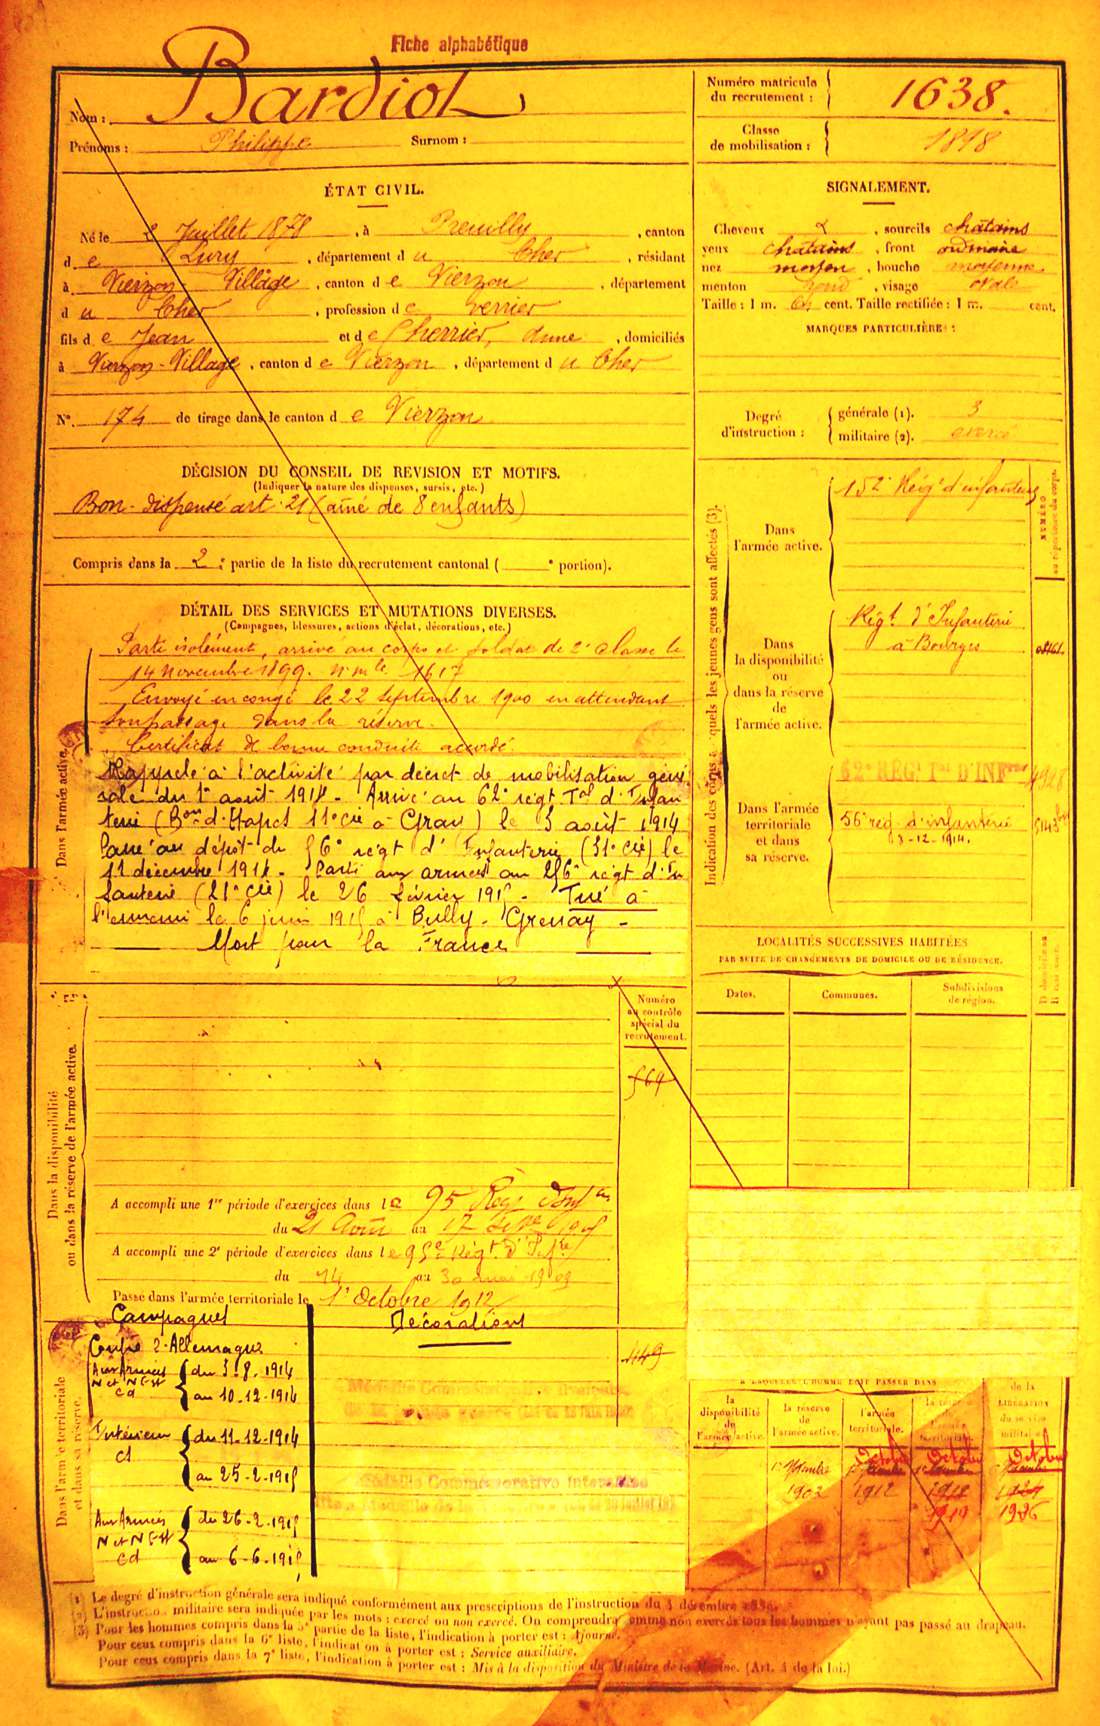 Fiche alphabétique
Nom : Bardiot
Prénoms : Philippe Surnom :
Numéro matricule du recrutement : 1638.
Classe de mobilisation : 1898
ÉTAT CIVIL.
Né le 2 Juillet 1878, à Preuilly, canton
d e Lury, département d u Cher, résidant
à Vierzon Village, canton d e Vierzon, département
d u Cher, profession d e verrier
fils d e Jean et d e Cherrier, Anne, domiciliés
à Vierzon-Village, canton d e Vierzon, département d u Cher
N° 174 de tirage dans le canton d e Vierzon
SIGNALEMENT.
Cheveux, sourcils châtains
yeux châtains, front ordinaire
nez moyen, bouche moyenne
menton rond, visage ovale
Taille : 1 m. cent. Taille rectifiée : 1 m. cent.
MARQUES PARTICULIÈRES :
Degré d'instruction : générale (1). 3
militaire (2). exercé
DÉCISION DU CONSEIL DE REVISION ET MOTIFS.
(Indiquer la nature des dispenses, sursis, etc.)
Bon - dispensé art. 21 (aîné de 8 enfants)
Compris dans la 2e partie de la liste du recrutement cantonal ( e portion).
DÉTAIL DES SERVICES ET MUTATIONS DIVERSES.
(Campagnes, blessures, actions d'éclat, décorations, etc.)
Dans l'armée active.
Parti isolément, arrivé au corps et soldat de 2e classe le
14 novembre 1899. n° mle 1617
Envoyé en congé le 22 septembre 1900 en attendant
son passage dans la réserve.
Certificat de bonne conduite accordé.
Rappelé à l'activité par décret de mobilisation géné
rale du 1er août 1914 - Arrivé au 62e régt Tal d'Infan
terie (Bon d'Etapes 11e Cie à Gray) le 3 août 1914
Passé au dépôt du 56e régt d'Infanterie (31e Cie) le
11 décembre 1914 - Parti aux armées au 256e régt d'In
fanterie (21e Cie) le 26 février 1915 - Tué à
l'ennemi le 6 juin 1915 à Bully - Grenay -
Mort pour la France
Indication des corps auxquels les jeunes gens sont affectés (3).
NUMÉRO au répertoire du corps.
Dans l'armée active.
152e Régt d'infanterie
Dans la disponibilité ou dans la réserve de l'armée active.
Régt d'Infanterie
à Bourges
Dans l'armée territoriale et dans sa réserve.
62e RÉGt Tal D'INFrie
56e rég. d'infanterie
LOCALITÉS SUCCESSIVES HABITÉES
PAR SUITE DE CHANGEMENTS DE DOMICILE OU DE RÉSIDENCE.
Dates. Communes. Subdivisions de région.
Dans la disponibilité ou dans la réserve de l'armée active.
Numéro au contrôle spécial du recrutement.
569
A accompli une 1re période d'exercices dans le 95 Régt d'Infie
du 21 Août au 17 Septbre 1905
A accompli une 2e période d'exercices dans le 95e Régt d'Infrie
du 14 au 30 mai 1909
Passé dans l'armée territoriale le 1er Octobre 1912
Dans l'armée territoriale et dans sa réserve.
Campagnes
Décorations
Contre l'Allemagne
Aux Armées
N et N Est
Cd
du 3.8.1914
au 10.12.1914
Intérieur
CS
du 11.12.1914
au 25.2.1915
Aux Armées
N et N Est
Cd
du 26.2.1915
au 6.6.1915
1149
À LAQUELLE L'HOMME DOIT PASSER DANS
la disponibilité de l'armée active.
la réserve de l'armée active.
l'armée territoriale.
la réserve de l'armée territoriale.
de la LIBÉRATION du service militaire.
Octobre Octobre Octobre
1902 1912 1918
1919 1926
(1) Le degré d'instruction générale sera indiqué conformément aux prescriptions de l'instruction du 4 décembre 1889.
(2) L'instruction militaire sera indiquée par les mots : exercé ou non exercé. On comprendra comme non exercés tous les hommes n'ayant pas passé au drapeau.
(3) Pour les hommes compris dans la 5e partie de la liste, l'indication à porter est : Ajourné.
Pour ceux compris dans la 6e liste, l'indication à porter est : Service auxiliaire.
Pour ceux compris dans la 7e liste, l'indication à porter est : Mis à la disposition du Ministre de la Marine. (Art. 4 de la loi.)